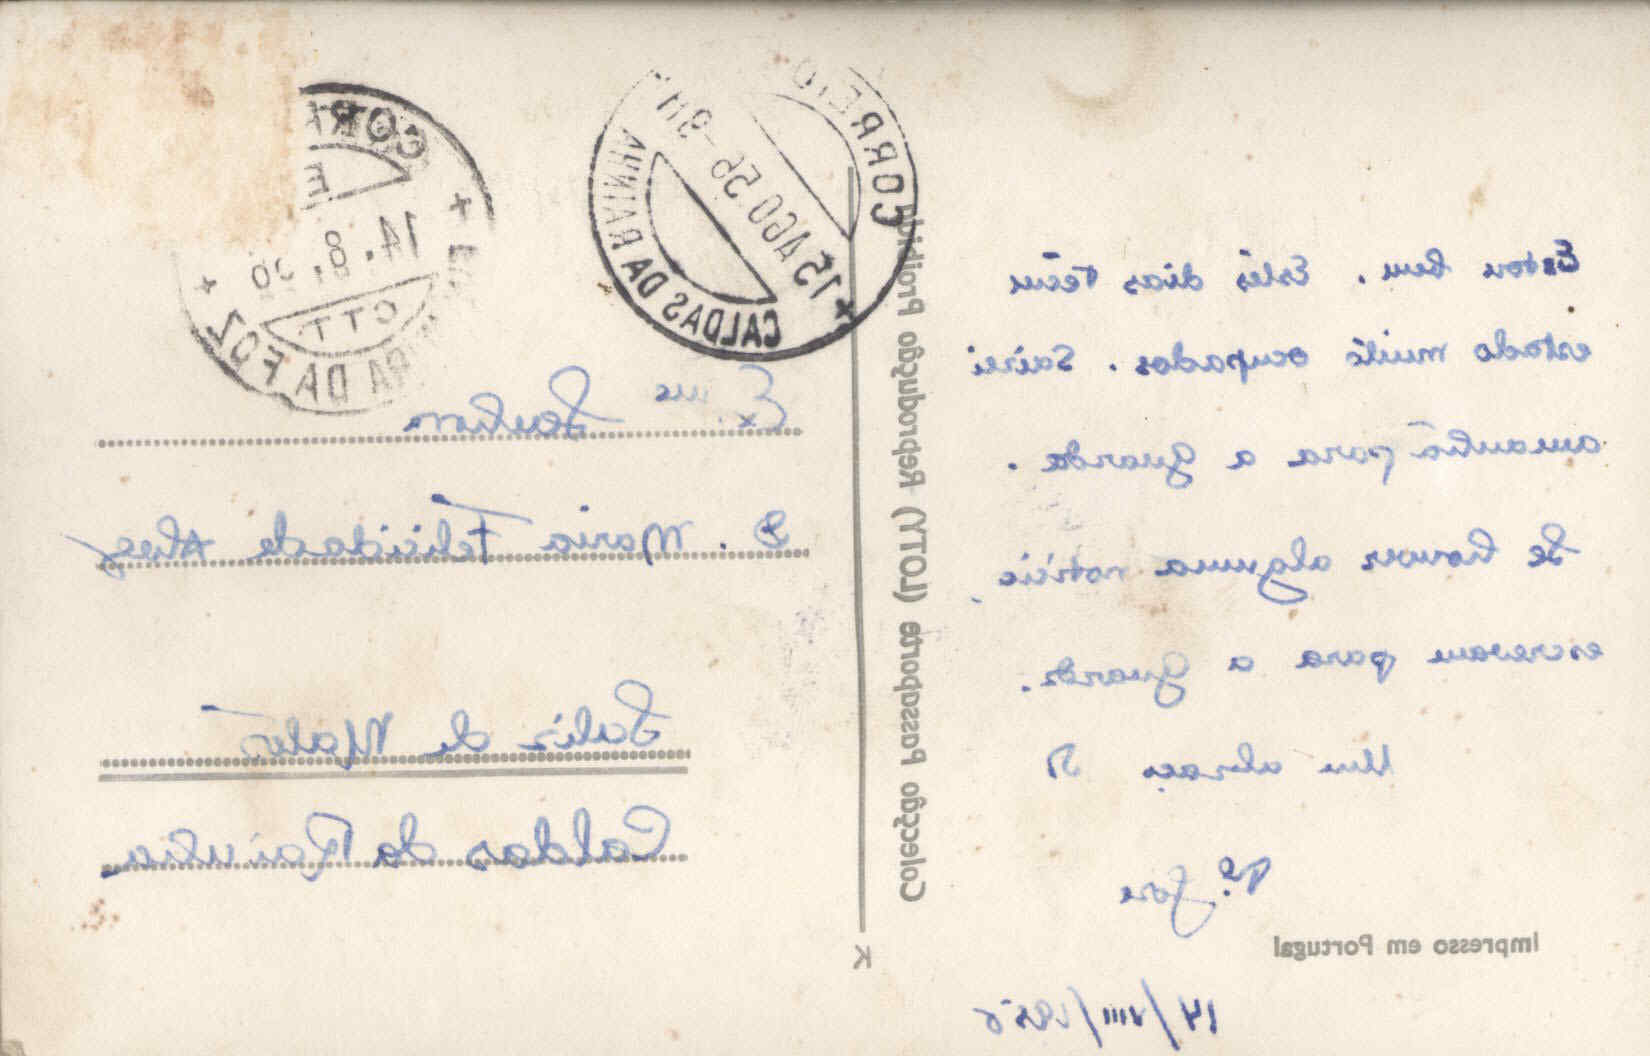 Estou bem. Estes dias têem
estado muito ocupados. Sairei
amanhã para a Guarda.
Se houver alguma notícia
escrevam para a Guarda.
Um abraço
Pe. José
14/VIII/1956
Impresso em Portugal
Colecção Passaporte (LOTY) Reprodução Proibida
K
CORREIO
15 AGO 56-9H
CALDAS DA RAINHA
14.8.56
CTT
DA FOZ
Ex.ma Senhora
D. Maria Felicidade Alves
Salir de Matos
Caldas da Rainha